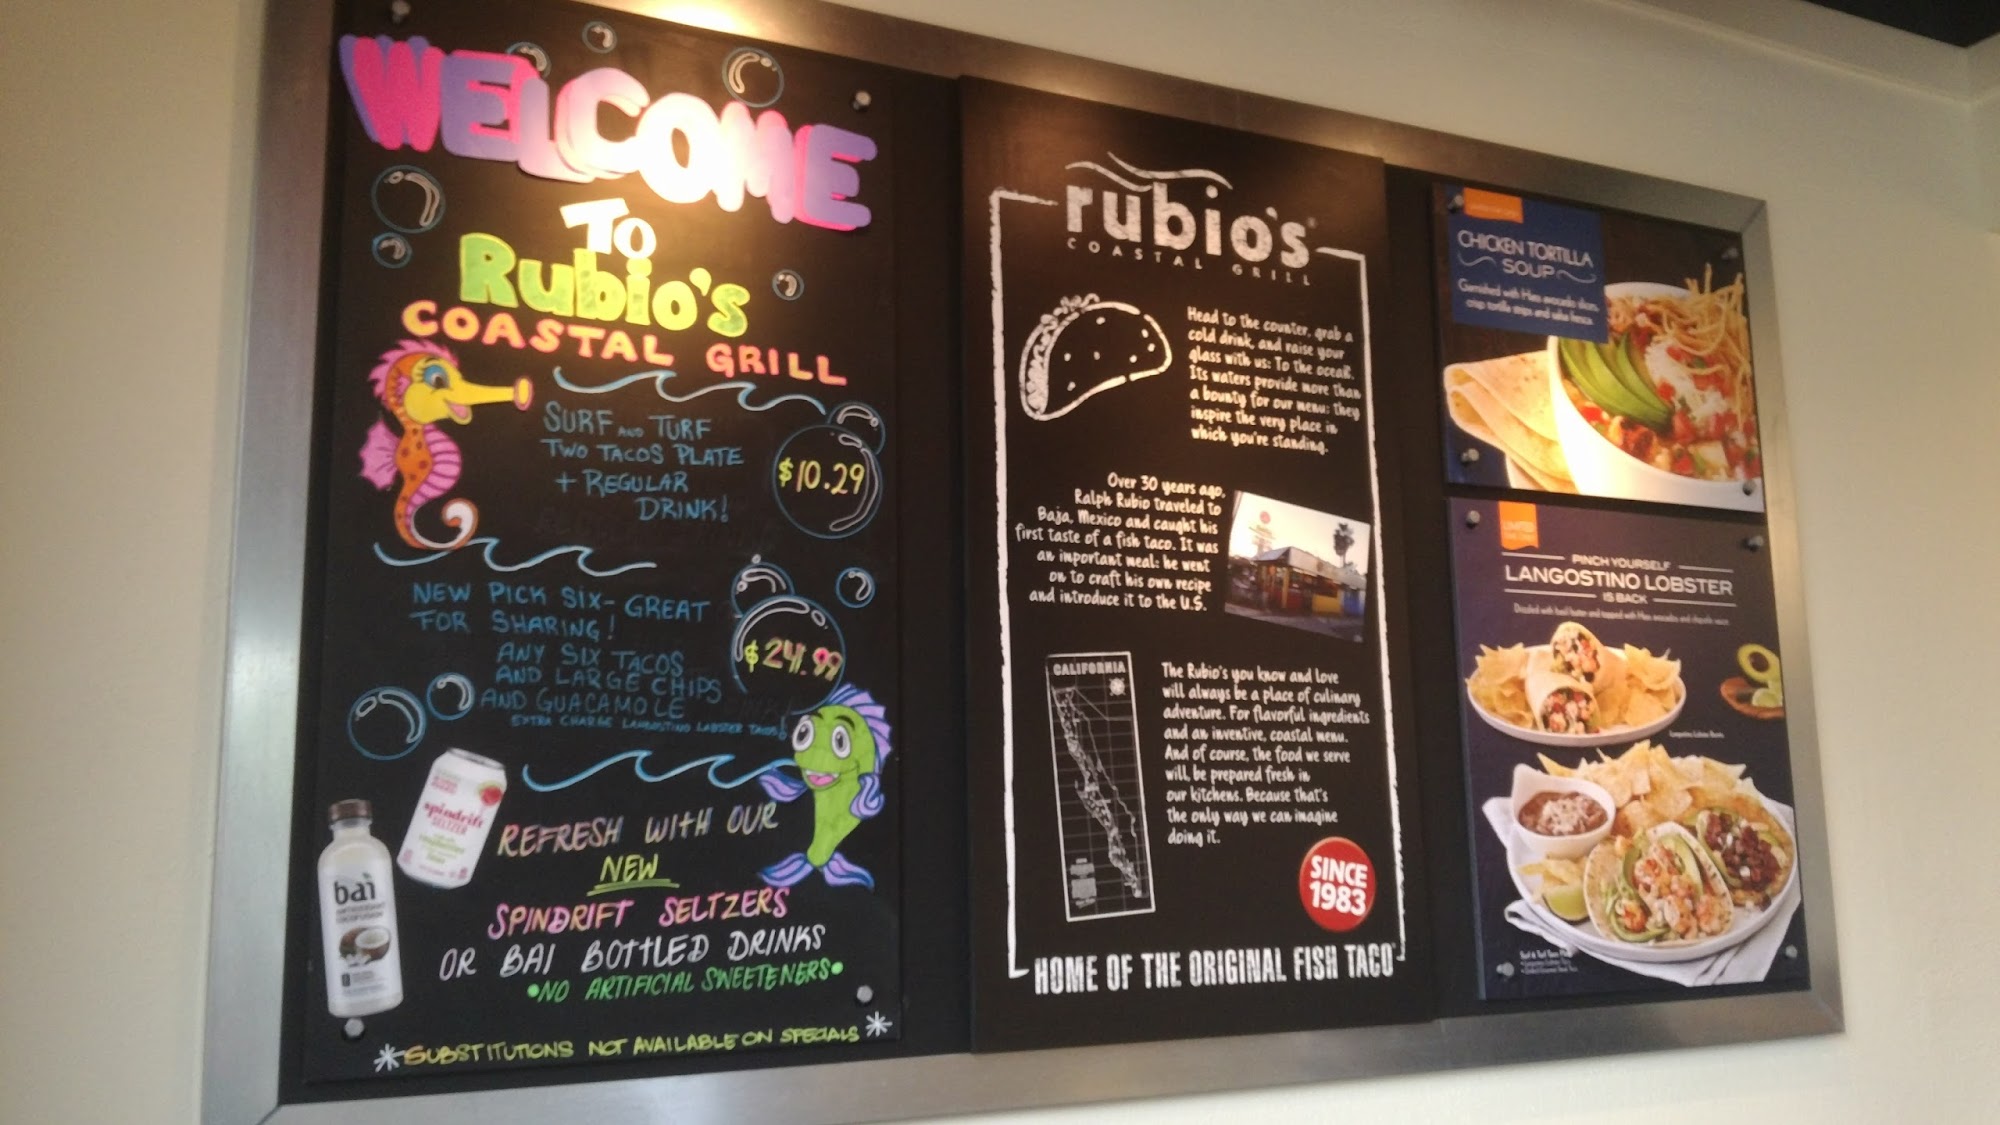 WELCOME
TO
RUBIO'S
COASTAL GRILL
SURF AND TURF
TWO TACOS PLATE
+ REGULAR
DRINK!
$10.29
NEW PICK SIX- GREAT
FOR SHARING!
ANY SIX TACOS
AND LARGE CHIPS
AND GUACAMOLE
EXTRA CHARGE LANGOSTINO LOBSTER TACOS!
$24.99
bai
spindrift
SELTZER
REFRESH WITH OUR
NEW
SPINDRIFT SELTZERS
OR BAI BOTTLED DRINKS
•NO ARTIFICIAL SWEETENERS•
*SUBSTITUTIONS NOT AVAILABLE ON SPECIALS*
rubio's®
COASTAL GRILL
Head to the counter, grab a
cold drink, and raise your
glass with us: To the ocean.
Its waters provide more than
a bounty for our menu: they
inspire the very place in
which you're standing.
Over 30 years ago,
Ralph Rubio traveled to
Baja, Mexico and caught his
first taste of a fish taco. It was
an important meal: he went
on to craft his own recipe
and introduce it to the U.S.
CALIFORNIA
The Rubio's you know and love
will always be a place of culinary
adventure. For flavorful ingredients
and an inventive, coastal menu.
And of course, the food we serve
will be prepared fresh in
our kitchens. Because that's
the only way we can imagine
doing it.
SINCE
1983
HOME OF THE ORIGINAL FISH TACO®
CHICKEN TORTILLA
SOUP
Garnished with Hass avocado slices,
crisp tortilla strips and salsa fresca.
LIMITED
TIME ONLY
PINCH YOURSELF
LANGOSTINO LOBSTER
IS BACK
Drizzled with basil butter and topped with Hass avocado and chipotle sauce
Langostino Lobster Burrito
Surf & Turf Taco Plate